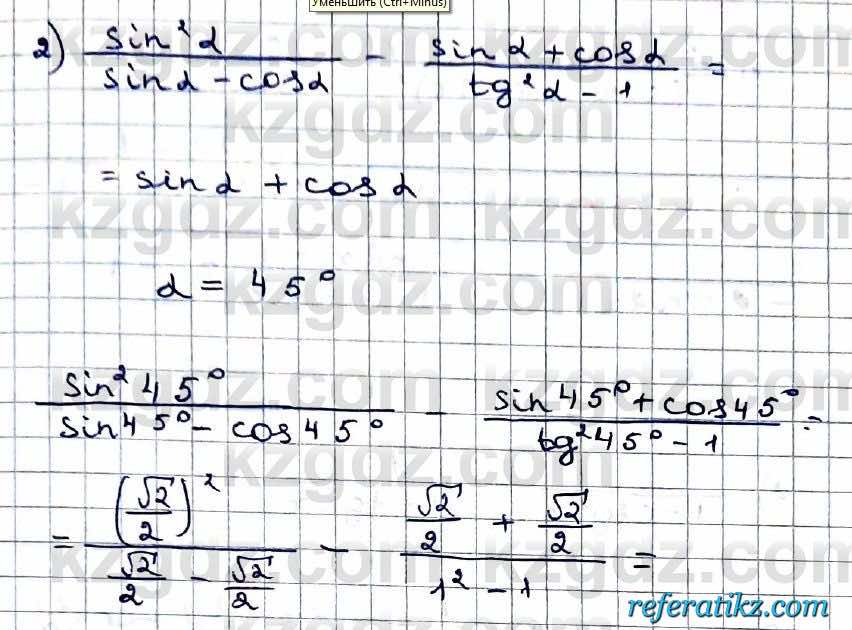 Уменьшить (Ctrl+Minus)
2) sin²α / (sinα - cosα) - (sinα + cosα) / (tg²α - 1) =
= sinα + cosα
α = 45°
sin²45° / (sin45° - cos45°) - (sin45° + cos45°) / (tg²45° - 1) =
= (√2/2)² / (√2/2 - √2/2) - (√2/2 + √2/2) / (1² - 1) =
kzgdz.com
referatikz.com